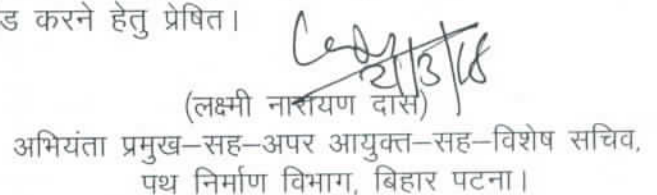 ड करने हेतु प्रेषित।
21/3/18
(लक्ष्मी नारायण दास)
अभियंता प्रमुख–सह–अपर आयुक्त–सह–विशेष सचिव,
पथ निर्माण विभाग, बिहार पटना।